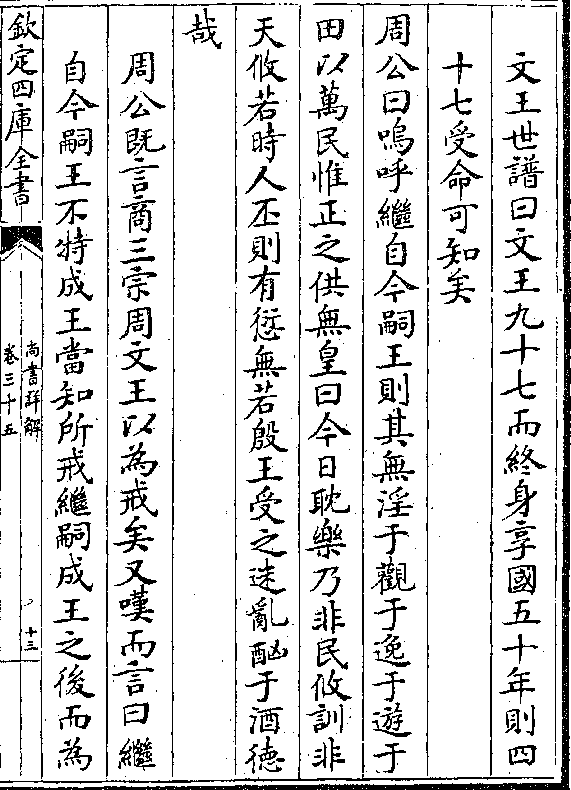 文王世譜曰文王九十七而終身享國五十年則四
十七受命可知矣
周公曰嗚呼繼自今嗣王則其無淫于觀于逸于遊于
田以萬民惟正之供無皇曰今日耽樂乃非民攸訓非
天攸若時人丕則有愆無若殷王受之迷亂酗于酒德
哉
周公既言商三宗周文王以為戒矣又嘆而言曰繼
自今嗣王不特成王當知所戒繼嗣成王之後而為
欽定四庫全書
尚書詳解
卷三十五
十三